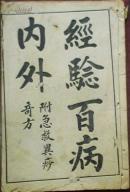 經驗百病
內外
附急救異痧
奇方